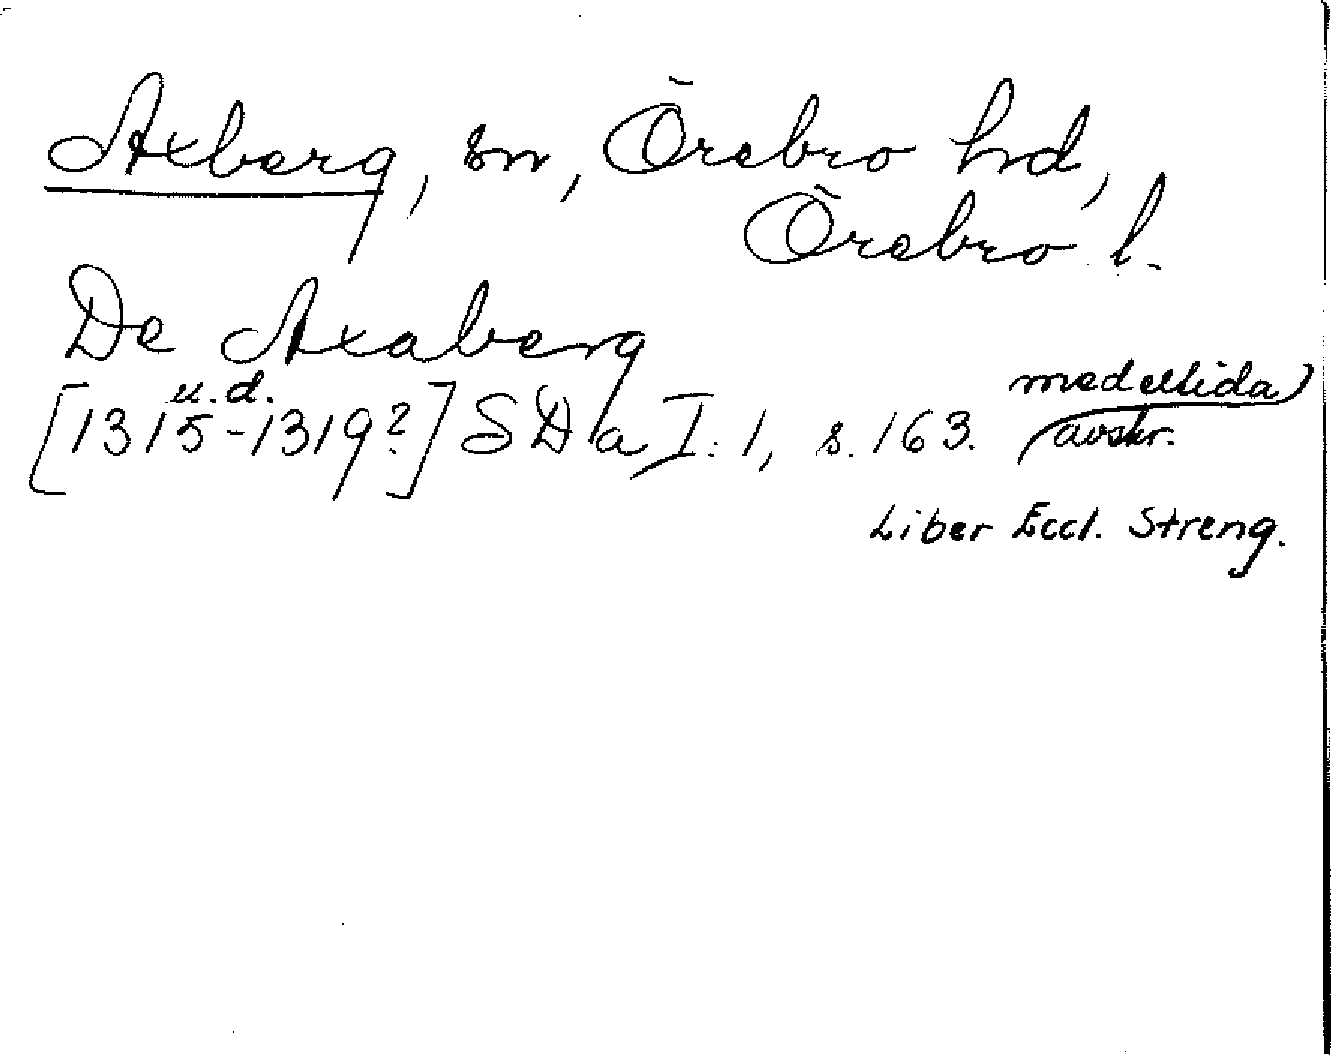 Axberg, sn, Örebro hd,
Örebro l.
De Axaberg
u.d.
[1315-1319?] SD a I:1, s. 163. medeltida avskr.
Liber Eccl. Streng.